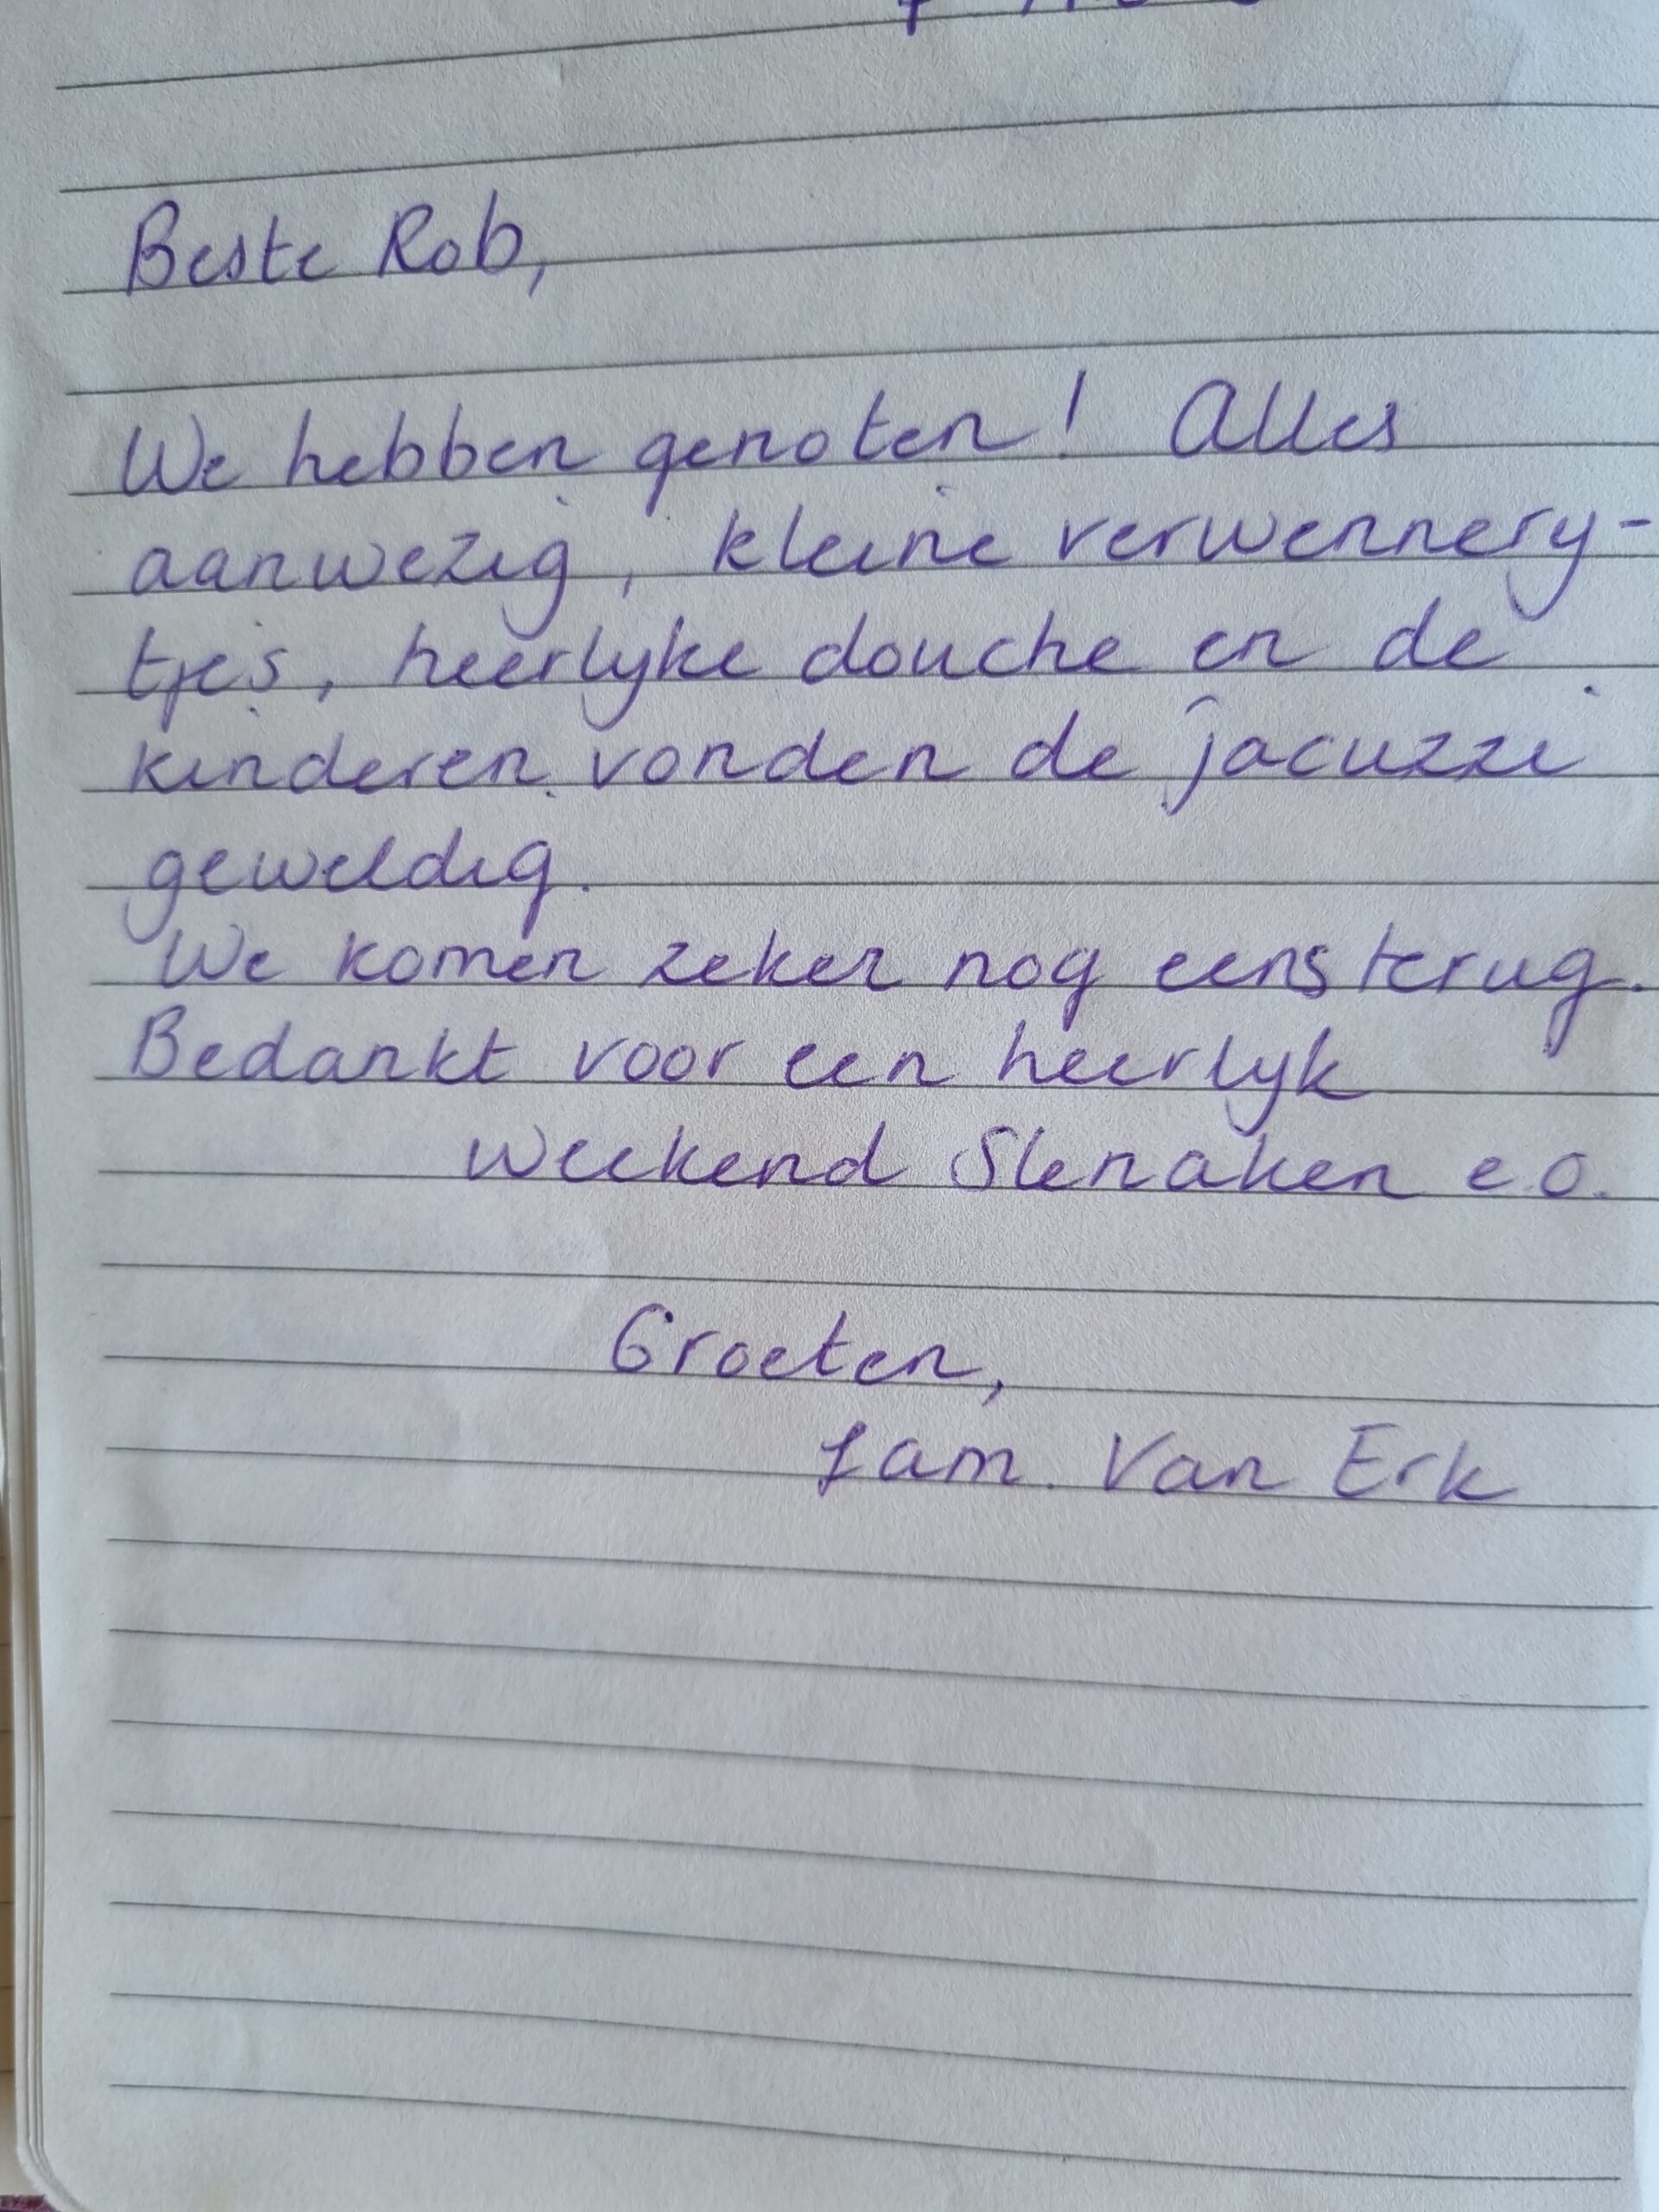 Beste Rob,
We hebben genoten! Alles
aanwezig, kleine verwennerij-
tjes, heerlijke douche en de
kinderen vonden de jacuzzi
geweldig.
We komen zeker nog eens terug.
Bedankt voor een heerlijk
weekend Slenaken e.o.
Groeten,
fam. Van Erk